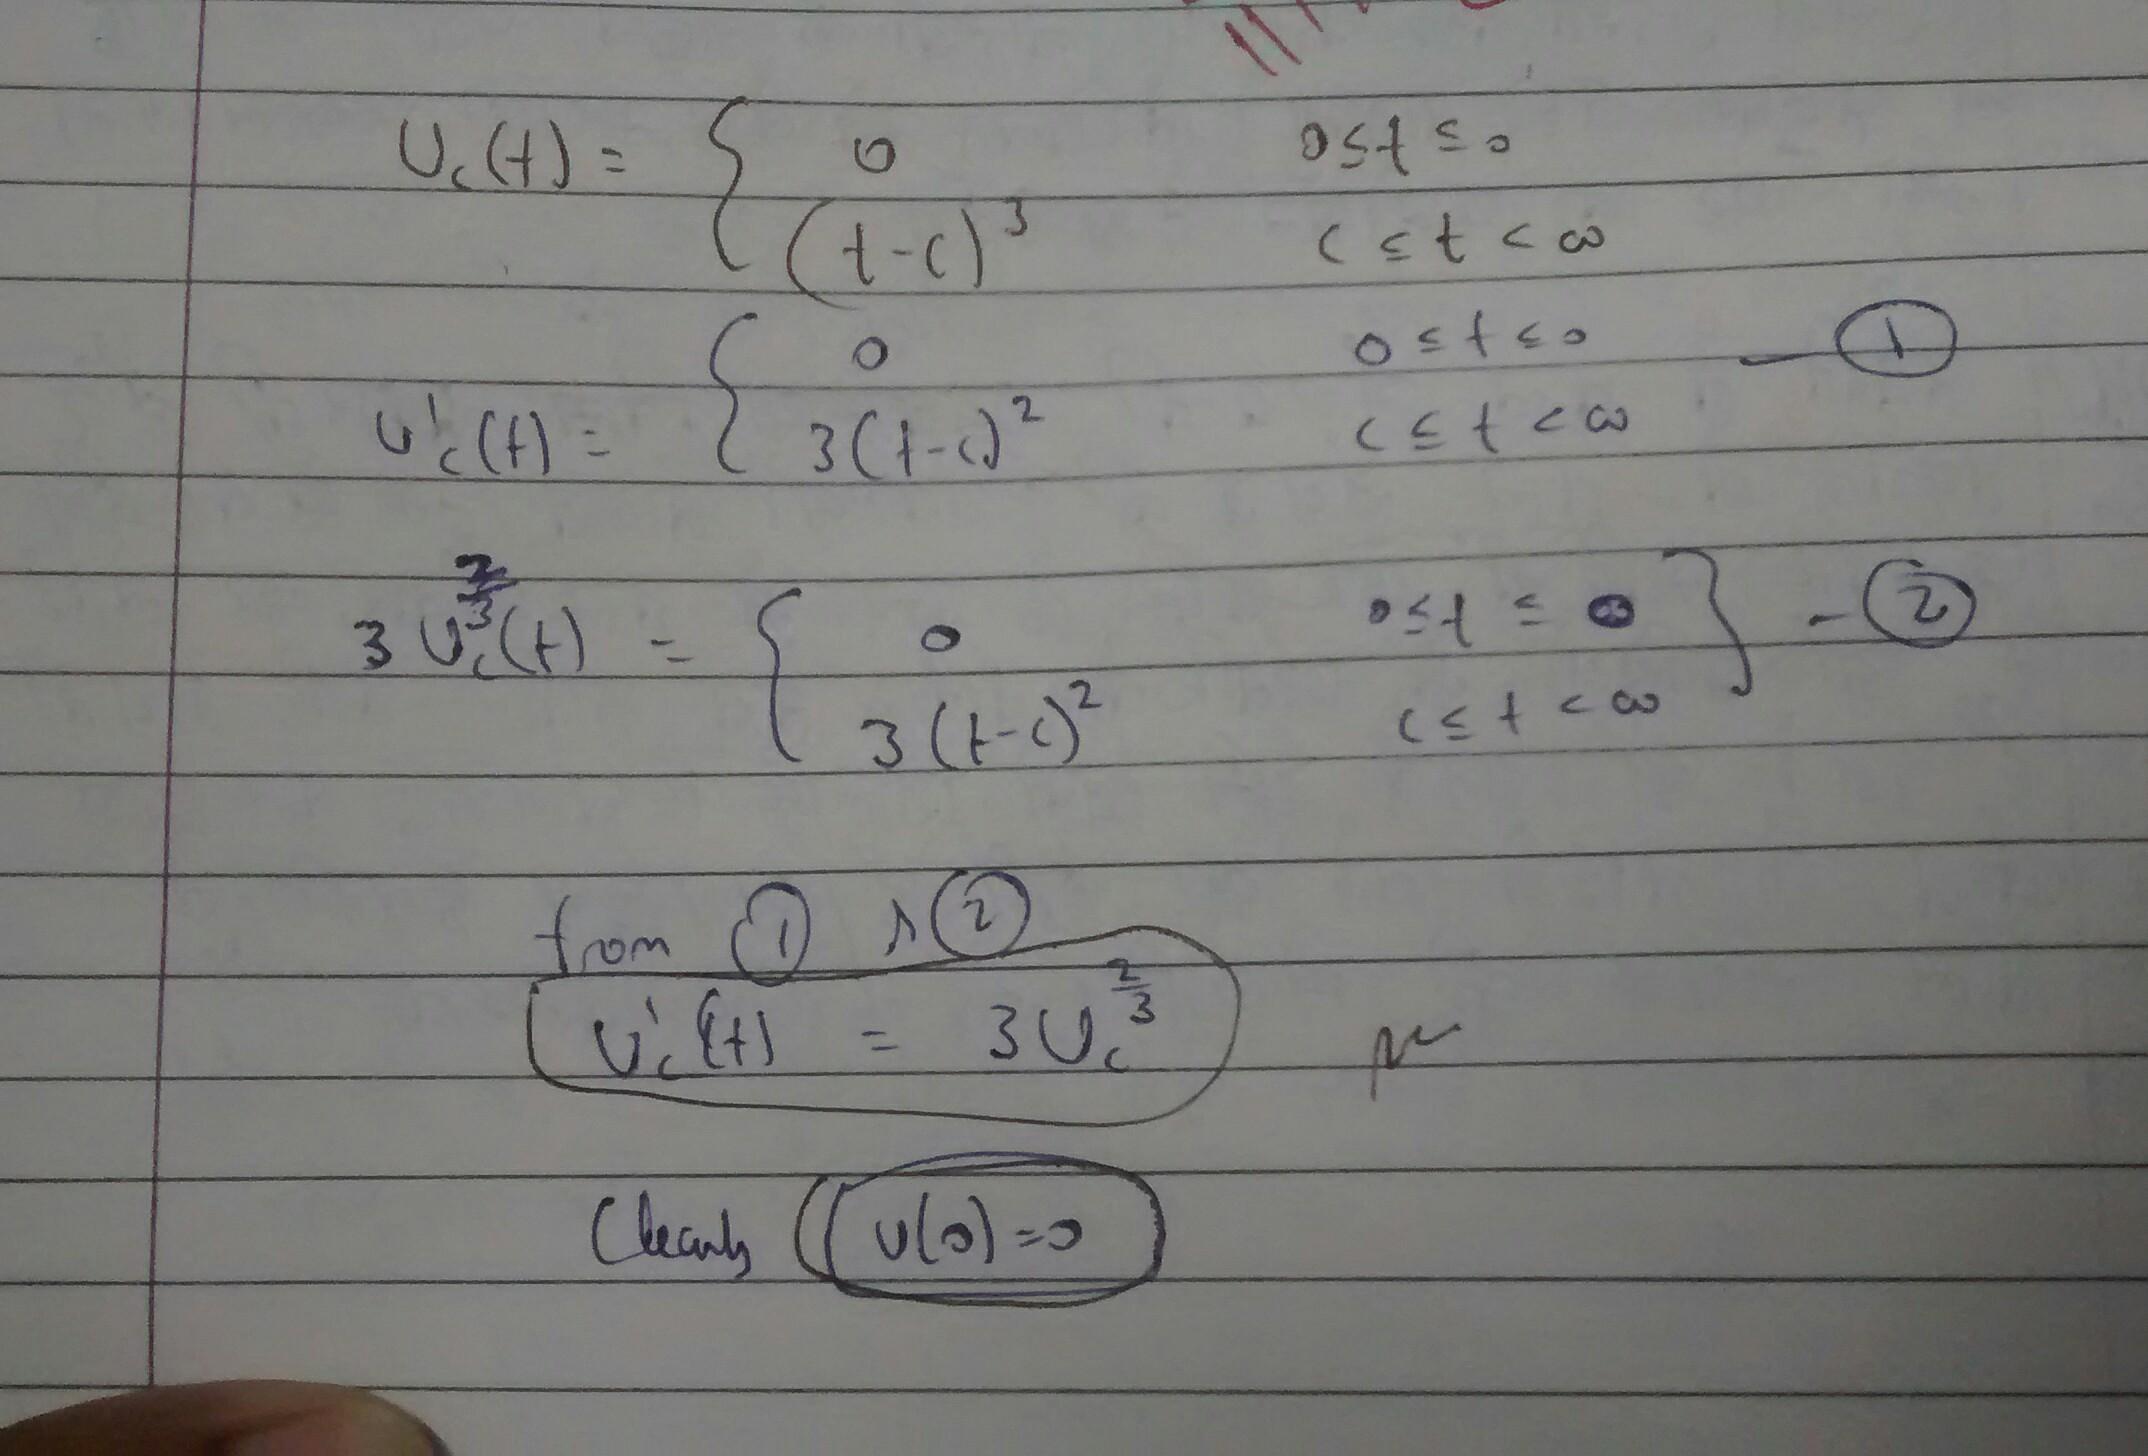 U_c(t) = { 0    0 ≤ t ≤ 0
(t-c)^3    c ≤ t < ∞
u'_c(t) = { 0    0 ≤ t ≤ 0    — ①
3(t-c)^2    c ≤ t < ∞
3 U_c^{2/3}(t) = { 0    0 ≤ t ≤ 0 } - ②
3(t-c)^2    c ≤ t < ∞
from ① & ②
U'_c(t) = 3U_c^{2/3}
Clearly u(0)=0